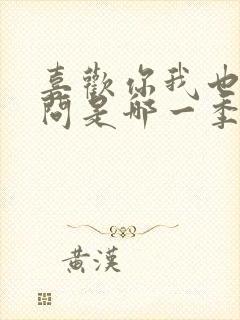 喜歡你我也
問是哪一季
黃漢